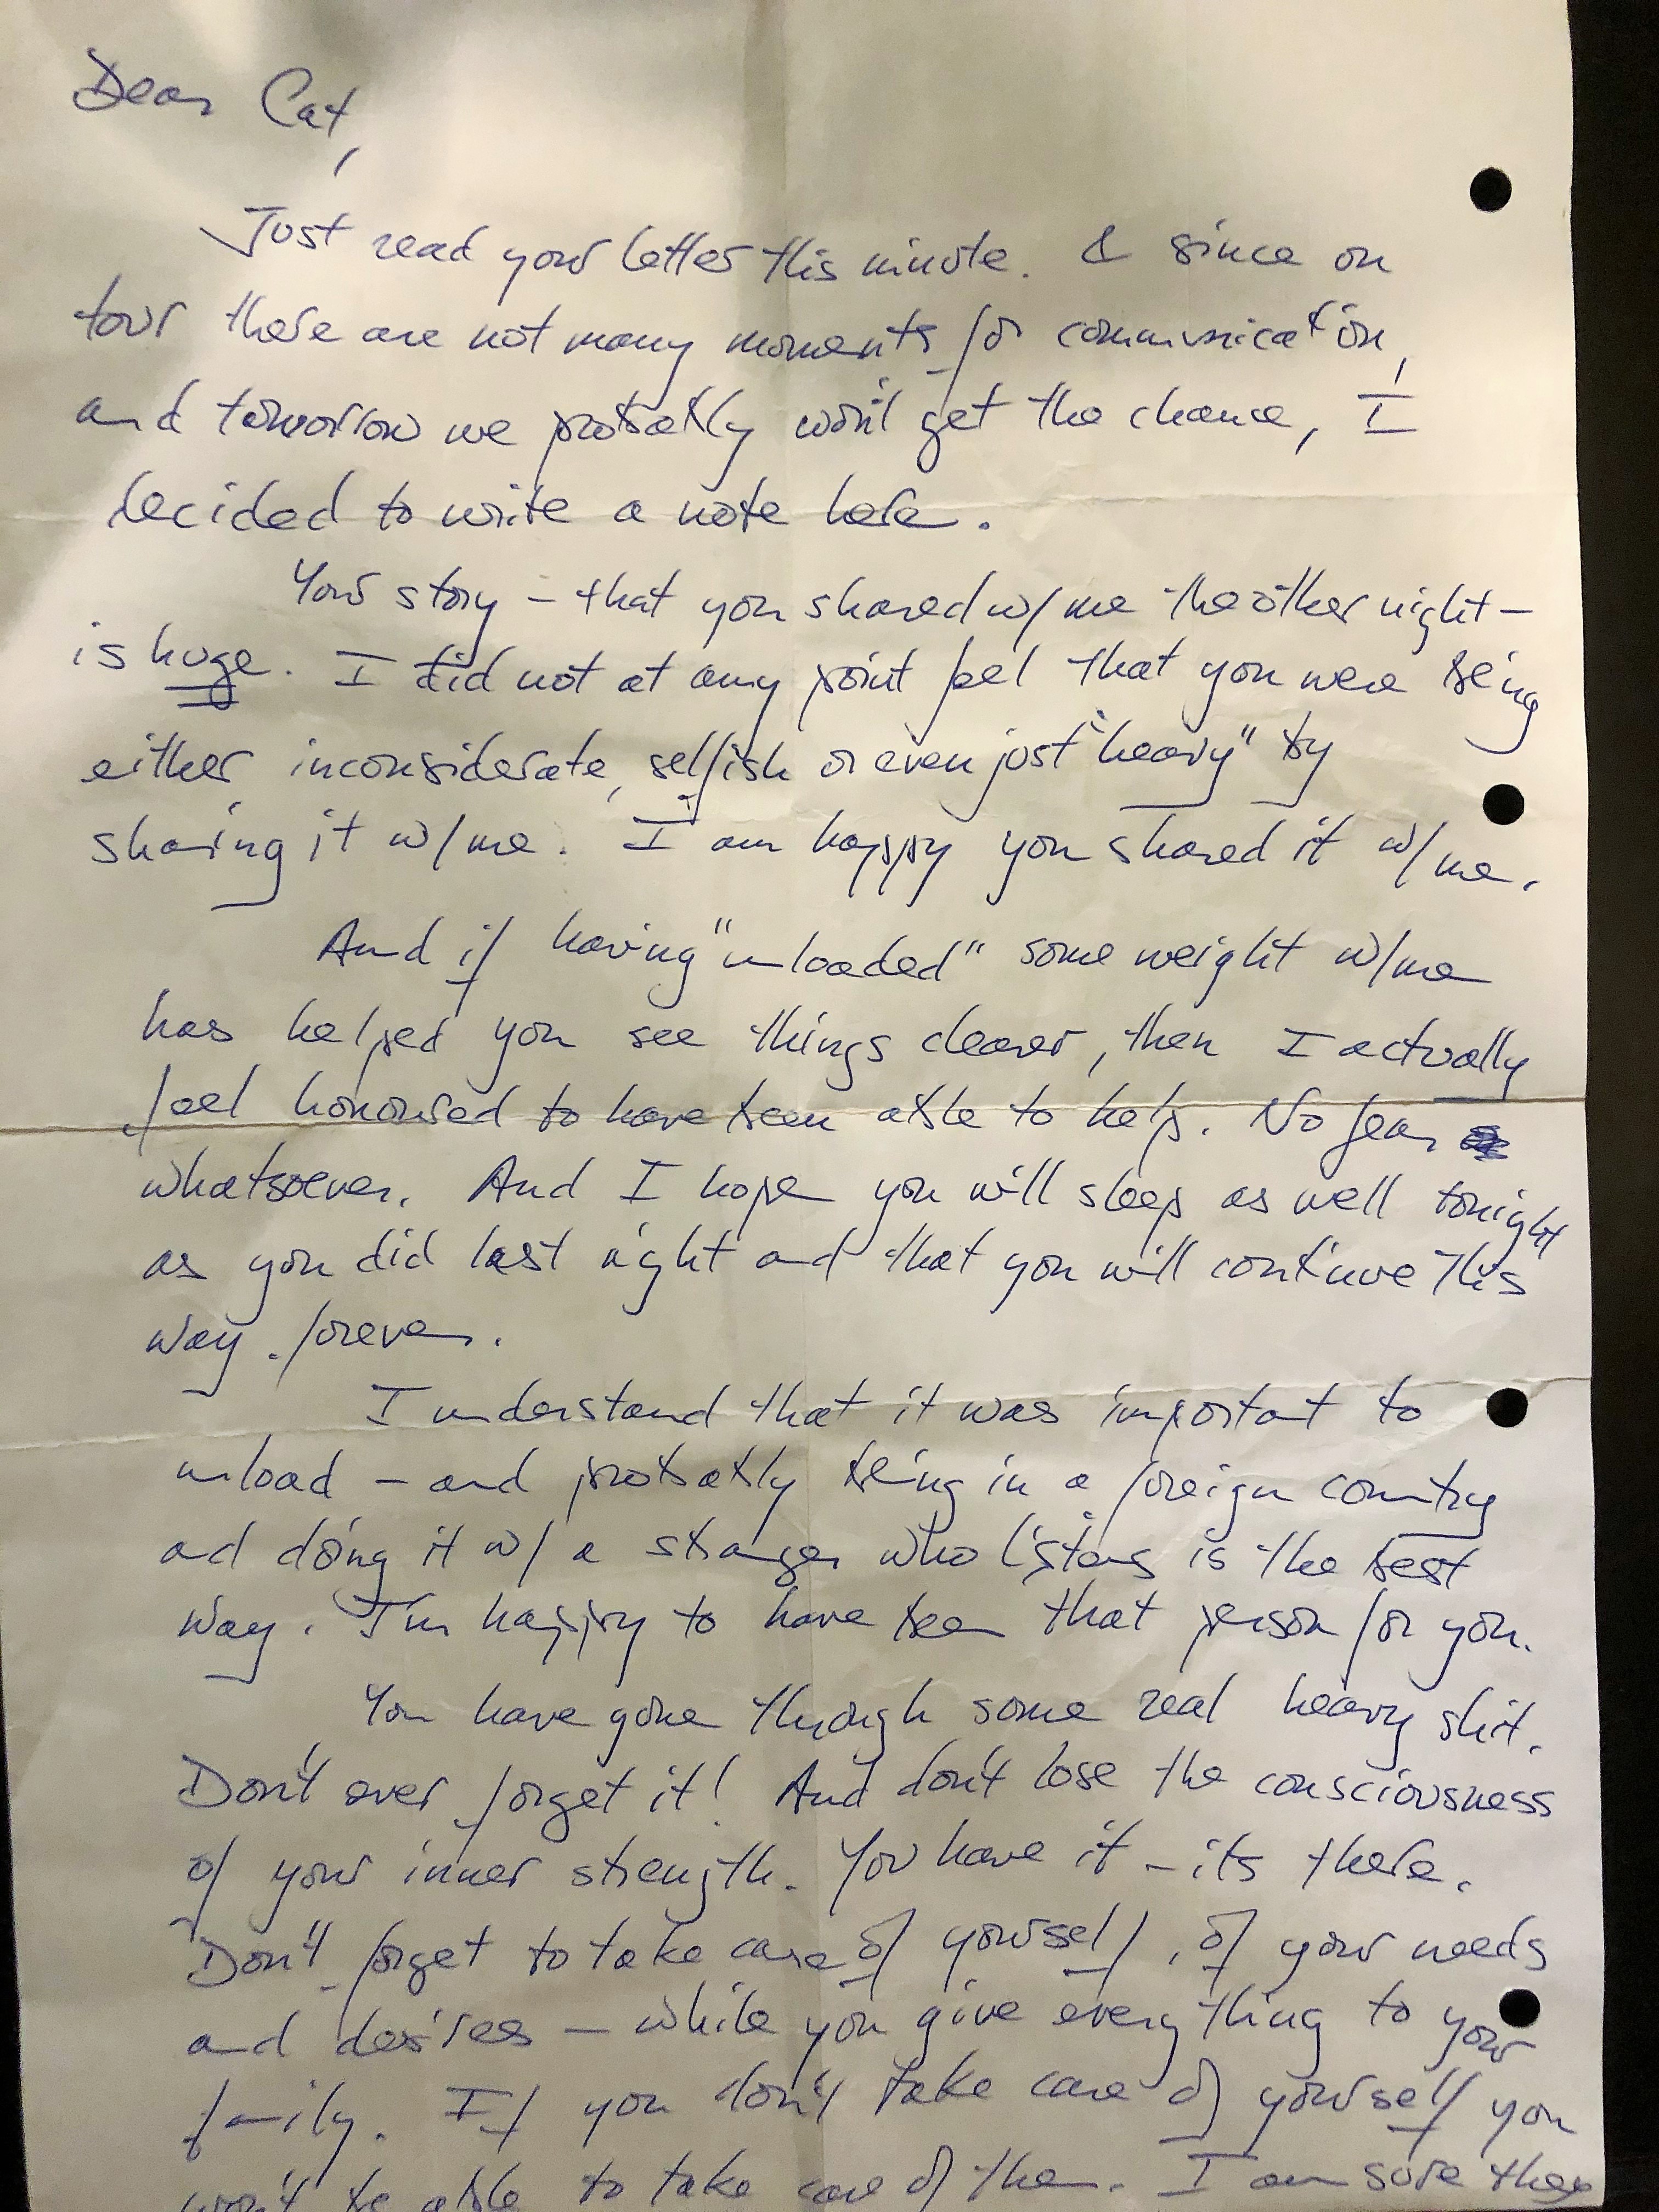 Dear Cat,
Just read your letter this minute. & since on
tour there are not many moments for communication,
and tomorrow we probably won't get the chance, I
decided to write a note here.
Your story – that you shared w/ me the other night –
is huge. I did not at any point feel that you were being
either inconsiderate, selfish or even just "heavy" by
sharing it w/ me. I am happy you shared it w/ me.
And if having "unloaded" some weight w/ me
has helped you see things clearer, then I actually
feel honoured to have been able to help. No fear
whatsoever. And I hope you will sleep as well tonight
as you did last night and that you will continue this
way forever.
I understand that it was important to
unload – and probably being in a foreign country
and doing it w/ a stranger who listens is the best
way. I'm happy to have been that person for you.
You have gone through some real heavy shit.
Don't ever forget it! And don't lose the consciousness
of your inner strength. You have it – its there.
Don't forget to take care of yourself, of your needs
and desires – while you give everything to your
family. If you don't take care of yourself you
won't be able to take care of them. I am sure they